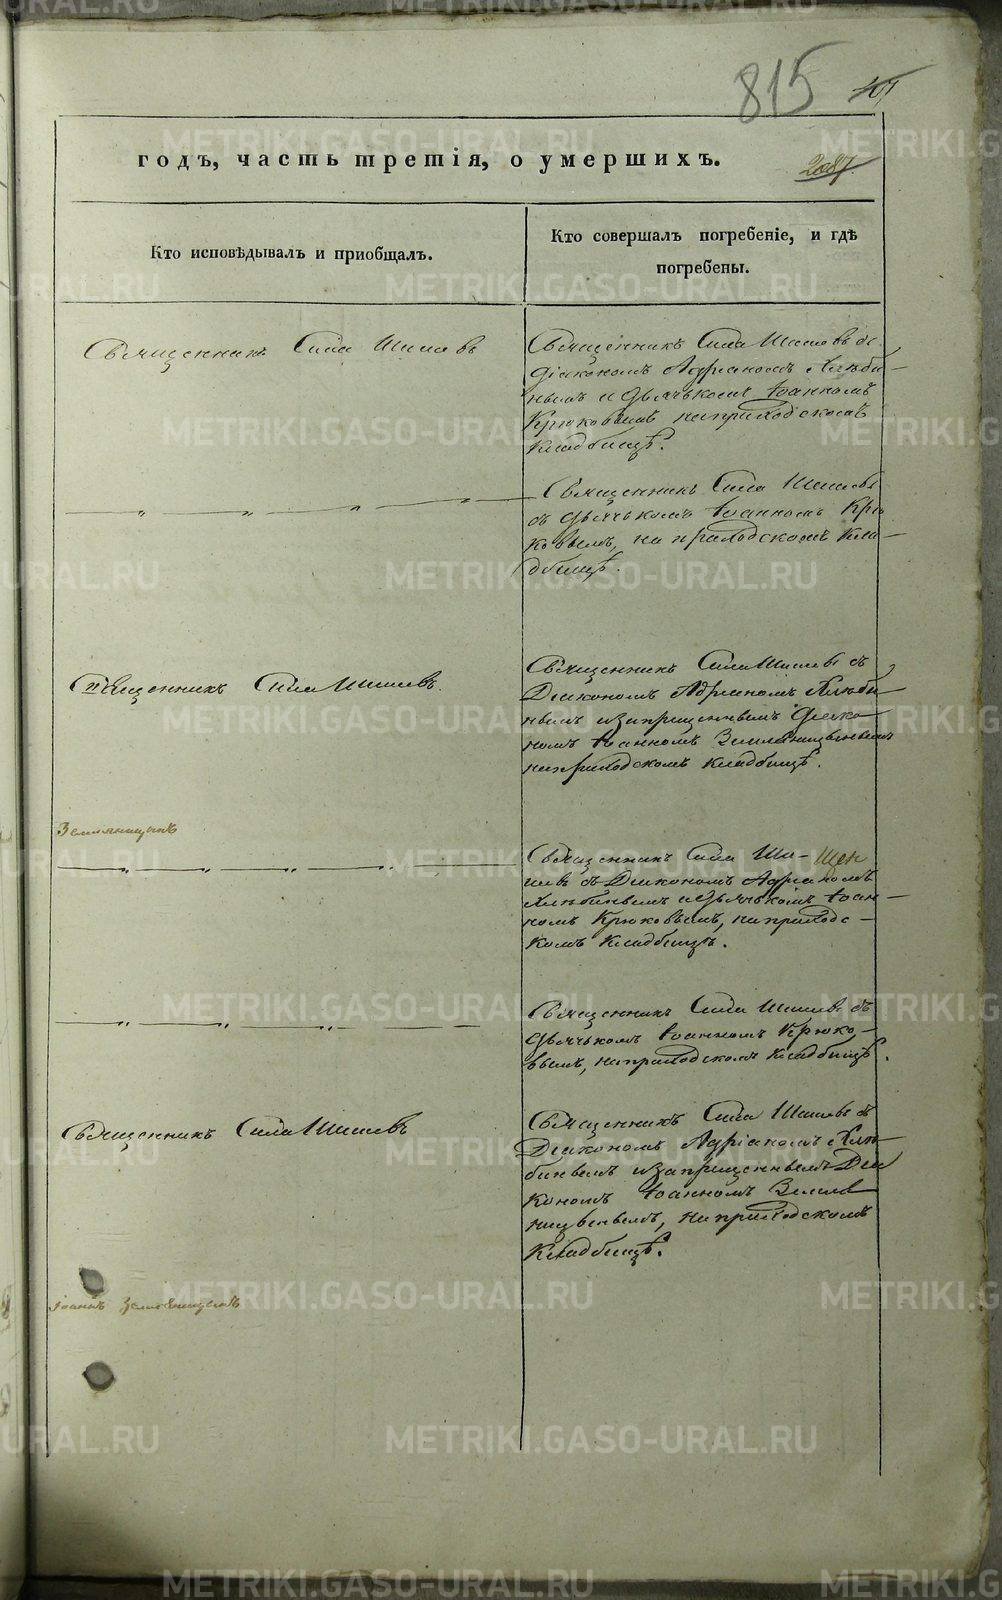 815
годъ, часть третія, о умершихъ.
2087
Кто исповѣдывалъ и пріобщалъ.
Кто совершалъ погребеніе, и гдѣ
погребены.
Священникъ Сила Шишевъ
Священникъ Сила Шишевъ съ
діакономъ Адріаномъ Хлѣби-
нымъ и дьячькомъ Іоанномъ
Крюковымъ на приходскомъ
кладбищѣ.
Священникъ Сила Шишевъ
съ дьячькомъ Іоанномъ Крю
ковымъ, на приходскомъ кла-
дбищѣ.
Священникъ Сила Шишевъ.
Священникъ Сила Шишевъ съ
Діакономъ Адріаномъ Хлѣби-
нымъ и запрещеннымъ Діако-
номъ Іоанномъ
на приходскомъ кладбищѣ.
Земляницынъ
Священникъ Сила Ши-
шевъ съ Діакономъ Адріаномъ
Хлѣбинымъ и дьячькомъ Іоан-
номъ Крюковымъ, на приходс-
комъ кладбищѣ.
Священникъ Сила Шишевъ съ
дьячькомъ Іоанномъ Крюко-
вымъ, на приходскомъ кладбищѣ.
Священникъ Сила Шишевъ
Священникъ Сила Шишевъ съ
Діакономъ Адріаномъ Хлѣ-
бинымъ и запрещеннымъ Діа
кономъ Іоанномъ
на приходскомъ
кладбищѣ.
Іоаннъ
METRIKI.GASO-URAL.RU